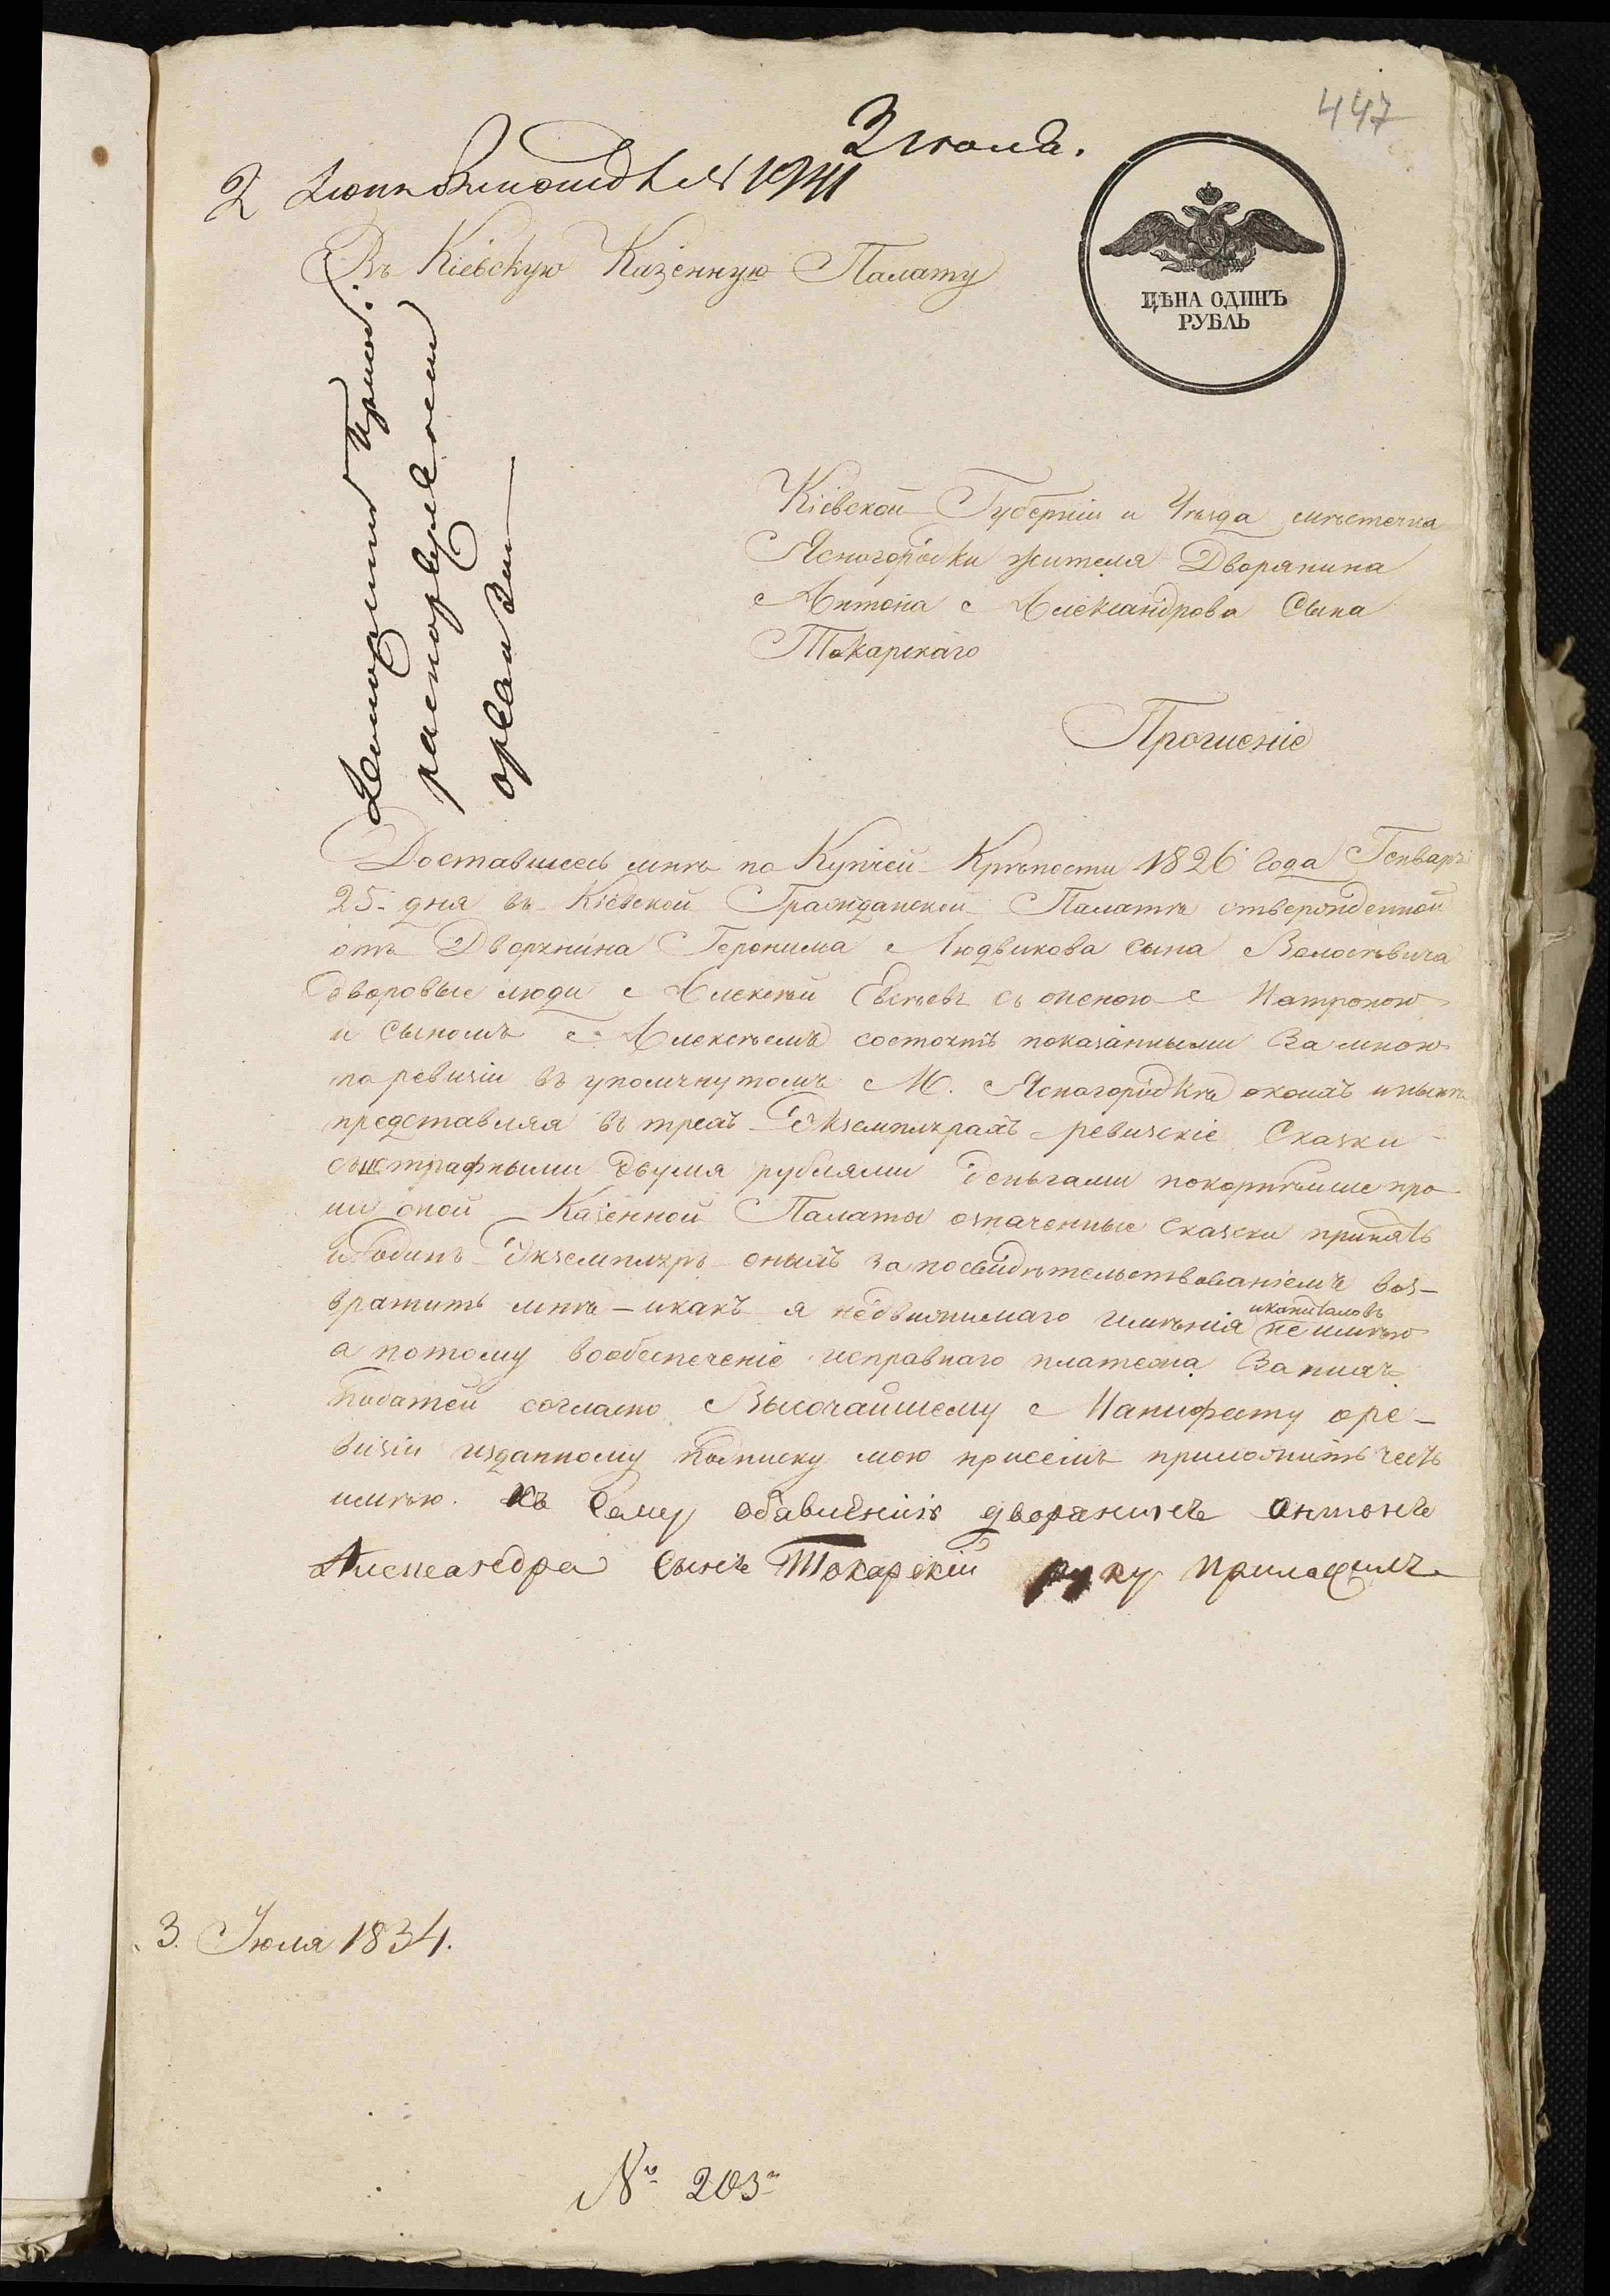 447
2 июля.
2
Въ Кіевскую Казенную Палату
ЦѢНА ОДИНЪ
РУБЛЬ
распоряженіи
о ревизіи
Кіевской Губерніи и Уѣзда мѣстечка
Ясногородки жителя Дворянина
Антона Александрова Сына
Токарскаго
Прошеніе
Доставшіесь мнѣ по Купчей Крѣпости 1826 года Генваря
25 дня въ Кіевской Гражданской Палатѣ утвержденной
отъ Дворянина Геронима Людвикова сына
дворовые люди Алексѣй Евсѣевъ съ женою Матроною
и сыномъ Алексѣемъ состоятъ показанными За мною
по ревизіи въ упомянутомъ М. Ясногородкѣ о коихъ нынѣ
представляя въ трехъ Экземплярахъ ревизскіе Сказки
съ штрафными двумя рублями деньгами покорнѣйше про
шу оной Казенной Палаты означенные сказки принять
и одинъ Экземпляръ оныхъ за посвидѣтельствованіемъ воз-
вратить мнѣ - и какъ я недвижимаго имѣнія и капиталовъ не имѣю
а потому вообеспеченіе исправнаго платежа За нихъ
податей согласно Высочайшему Манифесту о ре-
визіи изданному подписку мою присемъ приложить честь
имѣю. Къ Сему обавиенію дворянинъ Антонъ
Александра Сынъ Токарскій руку приложилъ
3. Іюля 1834.
№ 203